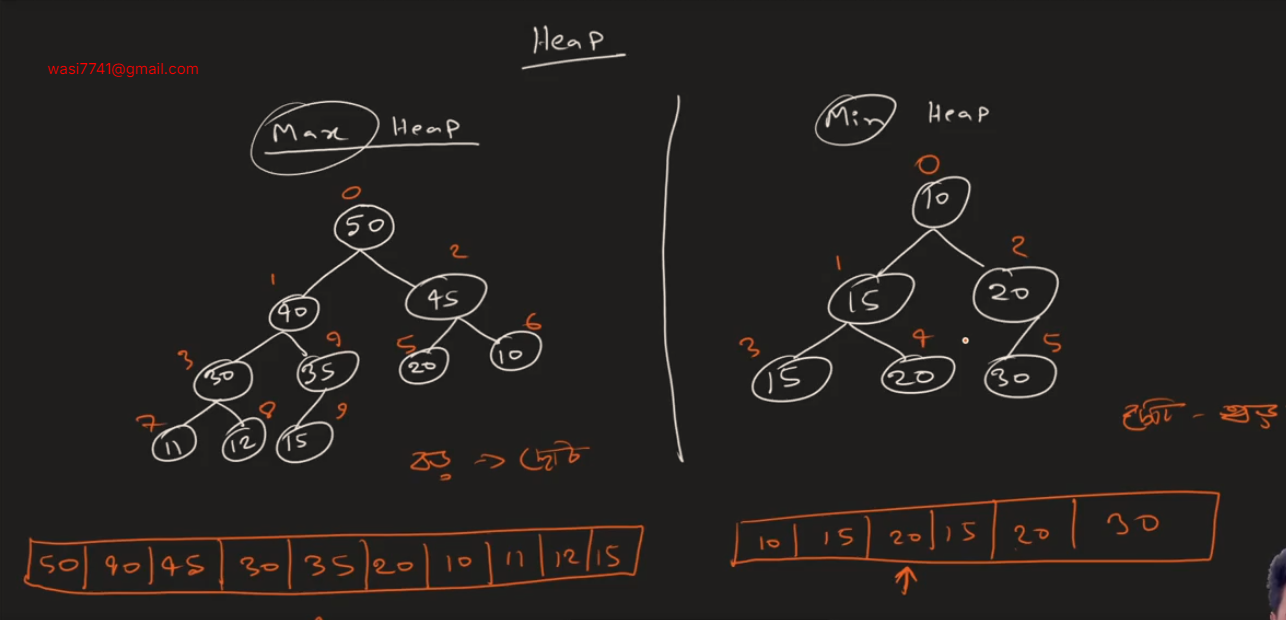 Heap
wasi7741@gmail.com
Max Heap
0
50
1 2
40 45
3 4 5 6
30 35 20 10
7 8 9
11 12 15
বড় -> ছোট
50 40 45 30 35 20 10 11 12 15
Min Heap
0
10
1 2
15 20
3 4 5
15 20 30
ছোট - বড়
10 15 20 15 20 30